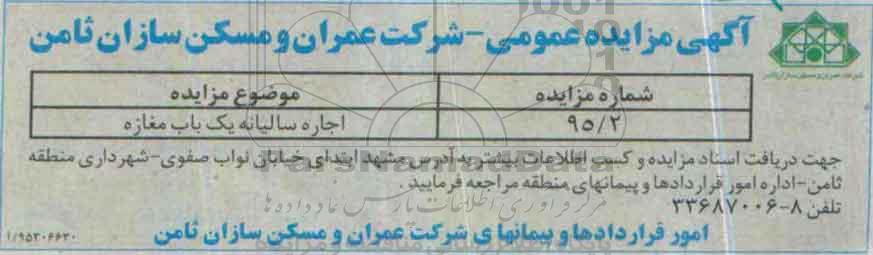 آگهی مزایده عمومی-شرکت عمران و مسکن سازان ثامن
شرکت عمران و مسکن سازان ثامن
شماره مزایده موضوع مزایده
۹۵/۲ اجاره سالیانه یک باب مغازه
جهت دریافت اسناد مزایده و کسب اطلاعات بیشتر به آدرس مشهد ابتدای خیابان نواب صفوی-شهرداری منطقه
ثامن-اداره امور قراردادها و پیمانهای منطقه مراجعه فرمایید.
تلفن ۸-۳۳۶۸۷۰۰۶
امور قراردادها و پیمانها ی شرکت عمران و مسکن سازان ثامن
۱/۹۵۳۰۶۶۳۰
ParsNamadData
مرکز فرآوری اطلاعات پارس نماد داده ها